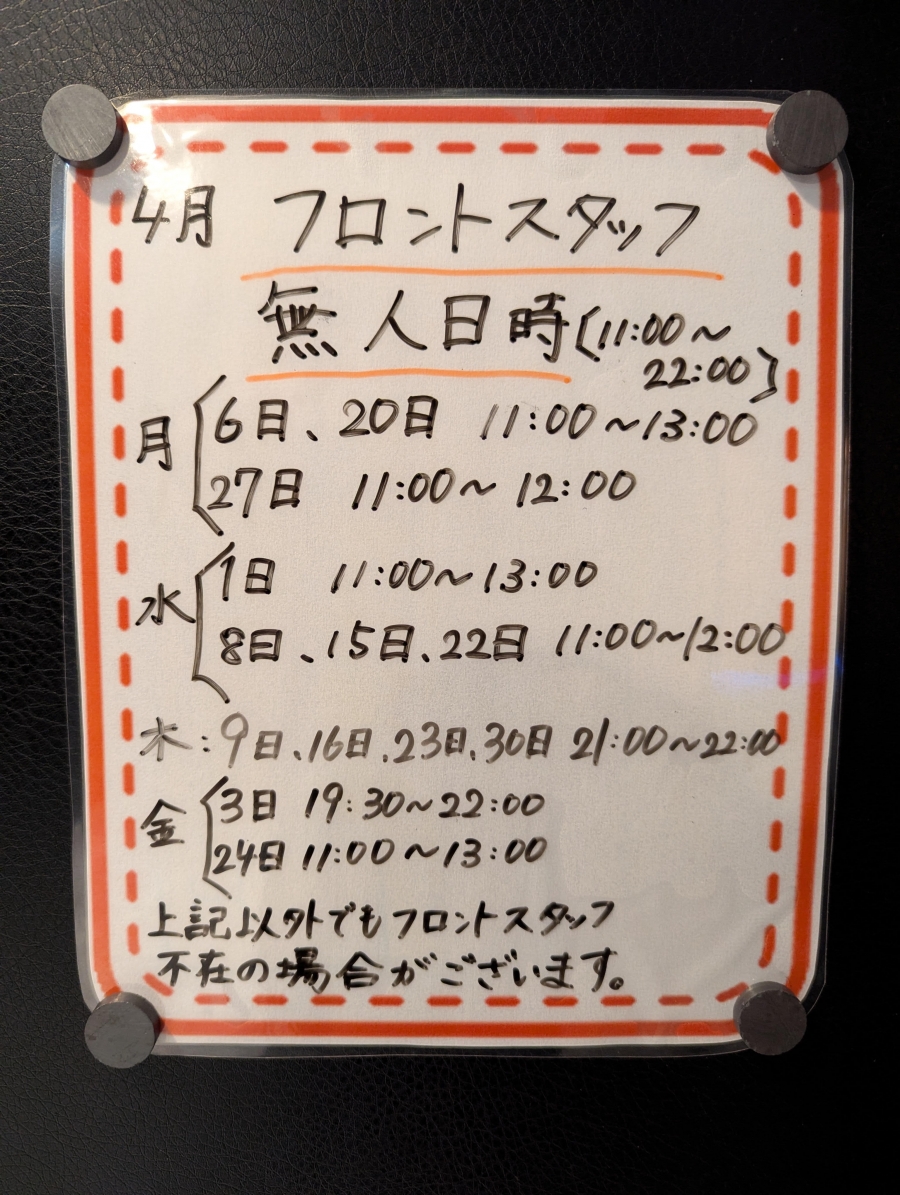 4月 フロントスタッフ
無人日時[11:00～
22:00]
月
6日、20日 11:00～13:00
27日 11:00～12:00
水
1日 11:00～13:00
8日、15日、22日 11:00～12:00
木:9日、16日、23日、30日 21:00～22:00
金
3日 19:30～22:00
24日 11:00～13:00
上記以外でもフロントスタッフ
不在の場合がございます。